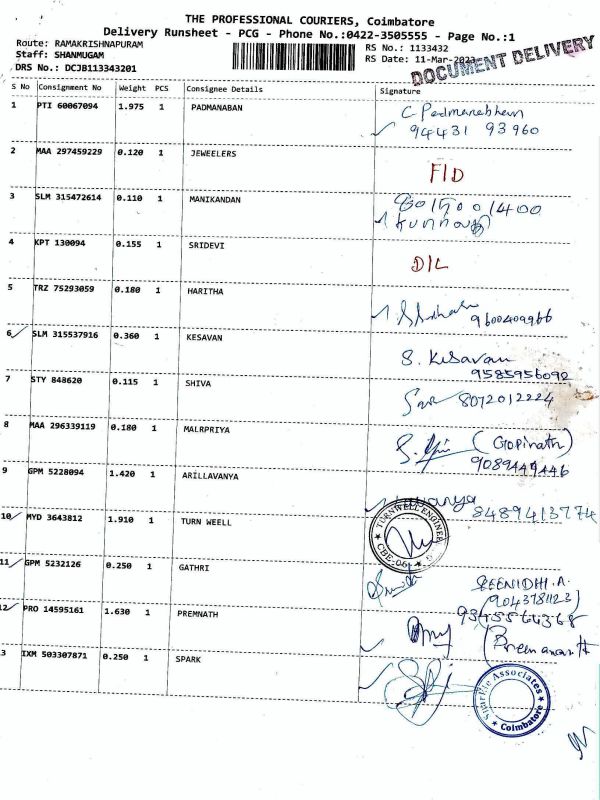 THE PROFESSIONAL COURIERS, Coimbatore
Delivery Runsheet - PCG - Phone No.:0422-3505555 - Page No.:1
Route: RAMAKRISHNAPURAM
Staff: SHANMUGAM
DRS No.: DCJB113343201
RS No.: 1133432
RS Date: 11-Mar-2023
DOCUMENT DELIVERY
S No Consignment No Weight PCS Consignee Details Signature
1 PTI 60067094 1.975 1 PADMANABAN C Padmanabhan
94431 93960
2 MAA 297459229 0.120 1 JEWEELERS F/D
3 SLM 315472614 0.110 1 MANIKANDAN
4 KPT 130094 0.155 1 SRIDEVI D/L
5 TRZ 75293059 0.180 1 HARITHA 9600409966
6 SLM 315537916 0.360 1 KESAVAN S. Kesavan
9585956092
7 STY 848620 0.115 1 SHIVA 8072012224
8 MAA 296339119 0.180 1 MALRPRIYA (Gopinath)
9089449446
9 GPM 5228094 1.420 1 ARILLAVANYA Lavanya
8489413774
10 MYD 3643812 1.910 1 TURN WEELL TURNWELL ENGINEER
CBE-06
11 GPM 5232126 0.250 1 GATHRI SREENIDHI.A
(9043781123)
12 PRO 14595161 1.630 1 PREMNATH 9345564368
13 IXM 503307871 0.250 1 SPARK Associates
Coimbatore